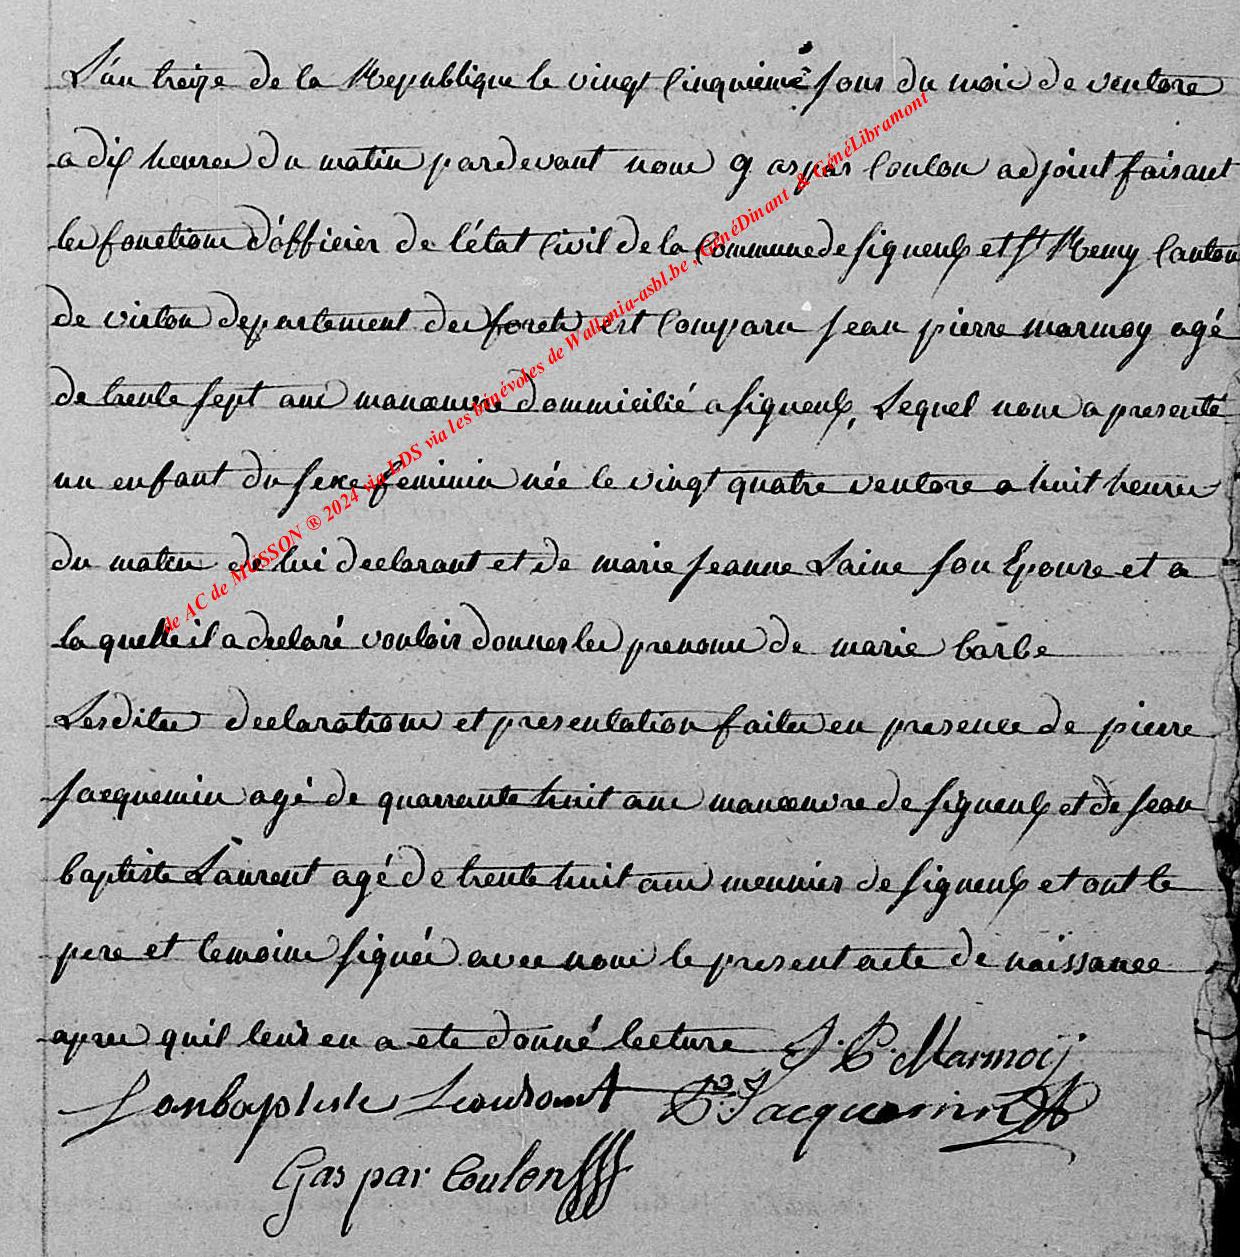 L'an treize de la Republique le vingt Cinquieme jour du mois de ventose
a dix heures du matin pardevant nous gaspar Coulon adjoint faisant
les fonctions d'officier de l'état Civil de la Commune de signeulx et St Remy Canton
de virton departement des forets est Comparu jean pierre marmoy agé
de trente sept ans manœuvre dommicilié a signeulx, Lequel nous a presenté
un enfant du sexe féminin née le vingt quatre ventose a huit heures
du matin de lui declarant et de marie jeanne Laine son Epouse et a
la quelle il a declaré vouloir donner les prenoms de marie barbe
Lesdites declarations et presentation faites en presence de pierre
jacquemin agé de quarrante huit ans manœuvre de signeulx et de jean
baptiste Laurent agé de trente huit ans meunier de signeulx et ont le
pere et temoins signés avec nous le present acte de naissance
apres quil leur en a ete donné lecture J. P. Marmoij
Janbaptiste Lourant P. Jacquemin
Gaspar Coulon
de AC de MUSSON ® 2024 via LDS via les bénévoles de Wallonia-asbl.be, GénéDinant & GénéLibramont